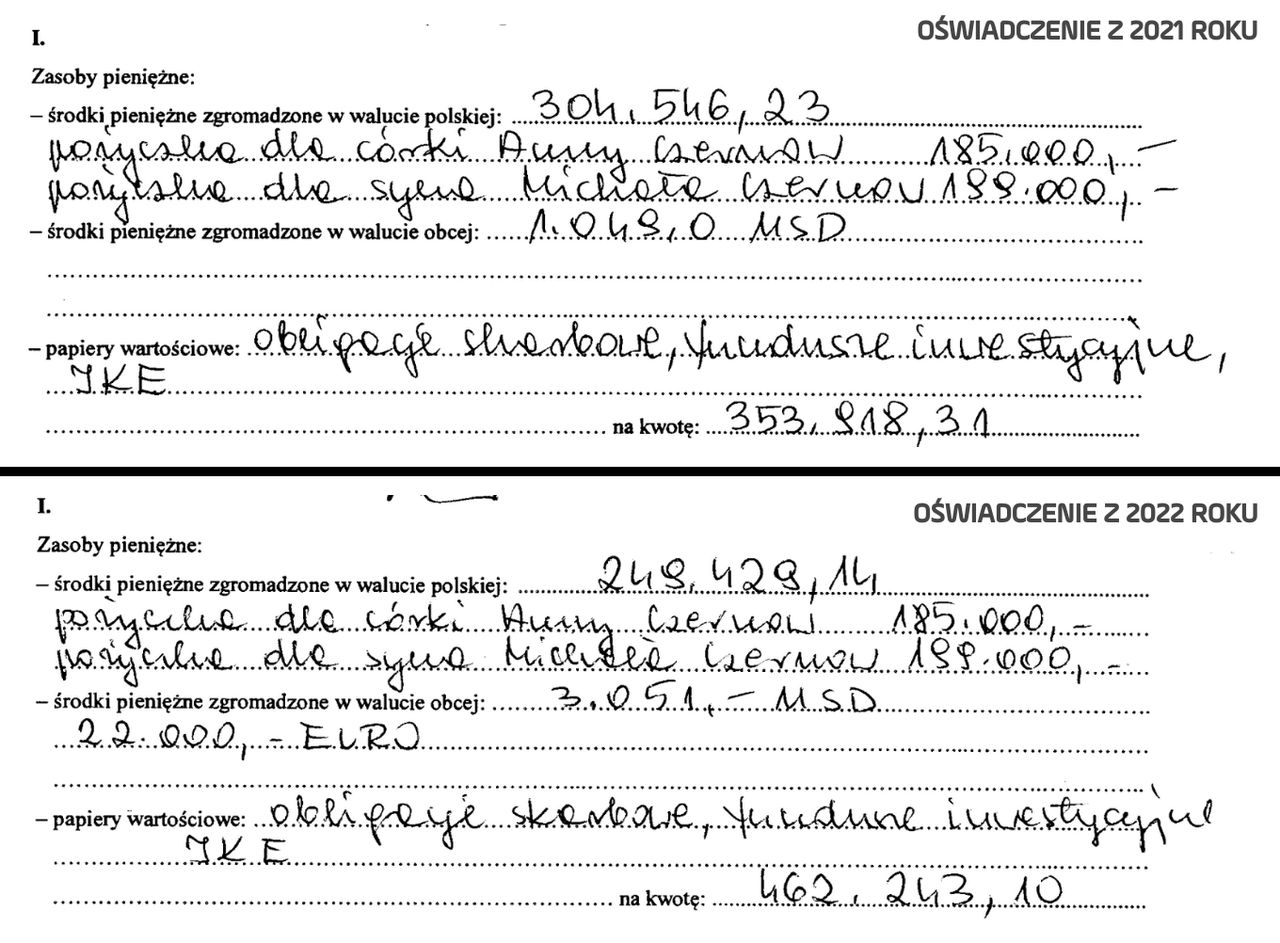 OŚWIADCZENIE Z 2021 ROKU
I.
Zasoby pieniężne:
– środki pieniężne zgromadzone w walucie polskiej: 304.546,23
pożyczka dla córki Anny Czernow 185.000,–
pożyczka dla syna Michała Czernow 199.000,–
– środki pieniężne zgromadzone w walucie obcej: 1.049,0 USD
– papiery wartościowe: obligacje skarbowe, fundusze inwestycyjne,
IKE
na kwotę: 353.918,31
OŚWIADCZENIE Z 2022 ROKU
I.
Zasoby pieniężne:
– środki pieniężne zgromadzone w walucie polskiej: 249.429,14
pożyczka dla córki Anny Czernow 185.000,–
pożyczka dla syna Michała Czernow 199.000,–
– środki pieniężne zgromadzone w walucie obcej: 3.051,– USD
22.000,– EURO
– papiery wartościowe: obligacje skarbowe, fundusze inwestycyjne
IKE
na kwotę: 462.243,10